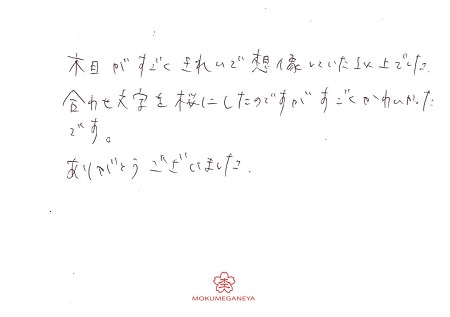 木目がすごくきれいで想像していた以上でした.
合わせ文字を桜にしたのですがすごくかわいかった
です。
ありがとうございました.
MOKUMEGANEYA